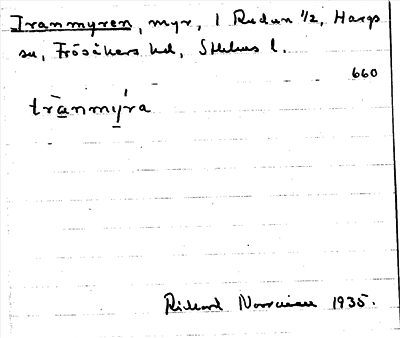 Tranmyren, myr, 1 Rudun 1/2, Hargs
sn, Frösåkers hd, Sthlms l.
660
trànmýra
Rickard Norrman 1935.